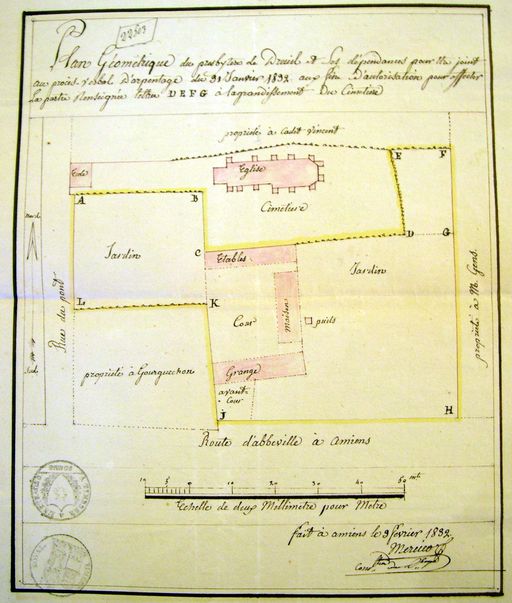 2203
Plan Géométrique du presbytere de Dreuil et Ses dépendances pour etre joint
au procès-verbal D'arpentage du 31 Janvier 1832 aux fins D'autorisation pour affecter
la partie Renseignée lettre DEFG à l'agrandissement Du Cimetiere
propriété à Cadet Vincent
Ecole
Eglise
E
F
A
B
Cimetiere
Nord
C
D
G
Jardin
Etables
Jardin
L
K
Cour
Maison
puits
Rue du pont
propriété à M. Gens
Sud
propriété à Gourguechon
Grange
avant
Cour
J
H
Route d'abbeville à amiens
10 5 0 10 20 30 40 50 mt.
Echelle de deux Millimetre pour Metre
fait à amiens le 3 février 1832